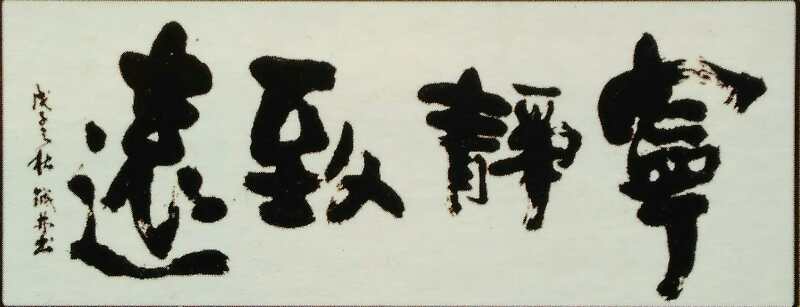 寧靜致遠
戊子之秋